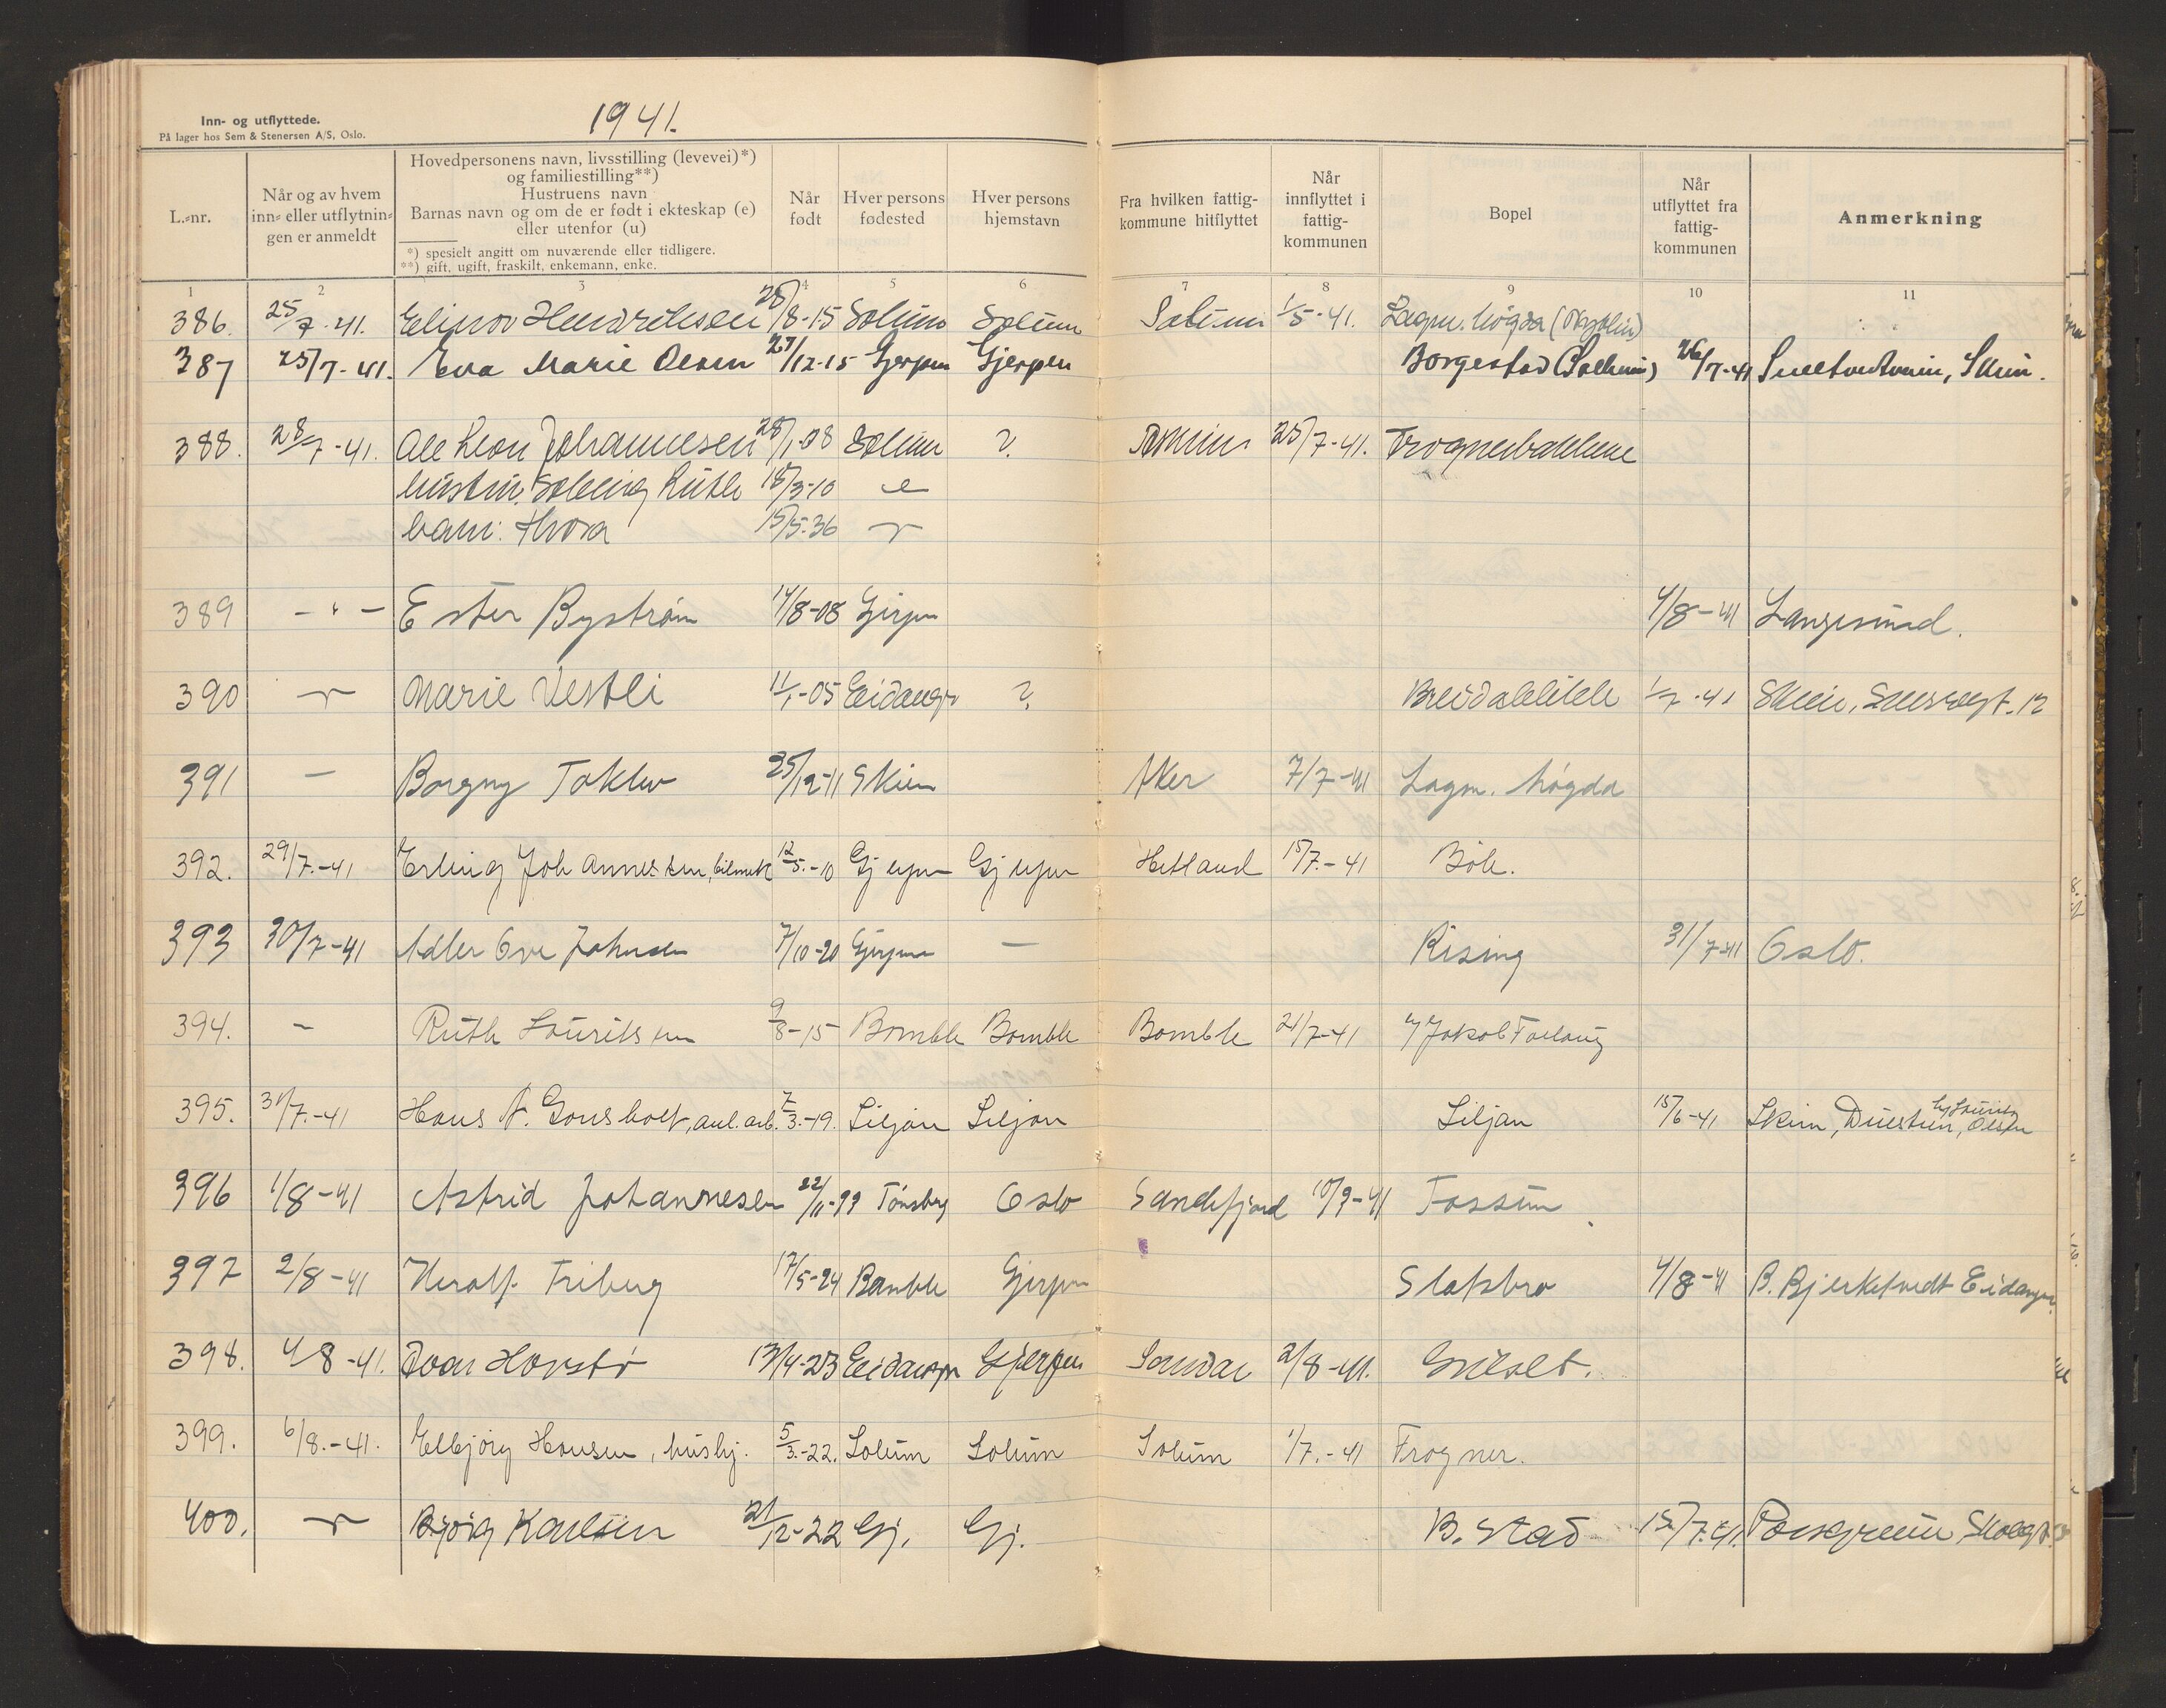 Inn- og utflyttede.
På lager hos Sem & Stenersen A/S, Oslo.
1941.
L.-nr.
Når og av hvem inn- eller utflytningen er anmeldt
Hovedpersonens navn, livsstilling (levevei)*)
og familiestilling**)
Hustruens navn
Barnas navn og om de er født i ekteskap (e)
eller utenfor (u)
*) spesielt angitt om nuværende eller tidligere.
**) gift, ugift, fraskilt, enkemann, enke.
Når født
Hver persons fødested
Hver persons hjemstavn
Fra hvilken fattigkommune hitflyttet
Når innflyttet i fattigkommunen
Bopel
Når utflyttet fra fattigkommunen
Anmerkning
1 2 3 4 5 6 7 8 9 10 11
386. 25/7-41. Elinor Henriksen 28/8-15 Solum Solum Solum 1/5-41. Lagm. høgda
387 25/7-41. Eva Marie Olsen 27/12-15 Gjerpen Gjerpen Borgestad 26/7-41
388. 28/7-41. Johannesen 28/1-08 Solum ? 25/7-41. Frognerbakkene
hustru: Solveig Ruth 18/3-10
barn: Thora 15/5-36
389 -"- Ester Byström 14/8-08 Gjerpen 4/8-41 Langesund.
390 Marie Vestli 11/1-05 Eidanger ? 1/7-41 Skien, 12
391 — Borgny 25/12-11 Skien Aker 7/7-41 Lagm. høgda
392. 29/7-41 Erling Johannessen, 12/5-10 Gjerpen Gjerpen Hetland 15/7-41 Böle.
393 30/7-41 Adler Ove Johnsen 7/10-20 Gjerpen — Rising 31/7-41 Oslo.
394. — Ruth Lauritsen 9/8-15 Bamble Bamble Bamble 21/7-41 Jakob
395. 31/7-41 Hans N. 7/3-19. Siljan Siljan Siljan 15/6-41 Skien, Duestien, Olsen
396 1/8-41 Astrid Johannesen 22/11-99 Tønsberg Oslo Sandefjord 10/7-41 Fossum
397 2/8-41 Herolf Friberg 17/5-24 Bamble Gjerpen Slatsbro 4/8-41 B. Bjerketvedt Eidanger
398. 4/8-41. Ivar Havstø 13/4-23 Eidanger Gjerpen Sandar 2/8-41. Gulset.
399. 6/8-41. Elbjørg Hansen, hushj. 5/3-22. Solum Solum Solum 1/7-41 Frogner.
400. Karlsen 21/12-22 Gj. Gj. B. Stad 15/7-41. Porsgrunn